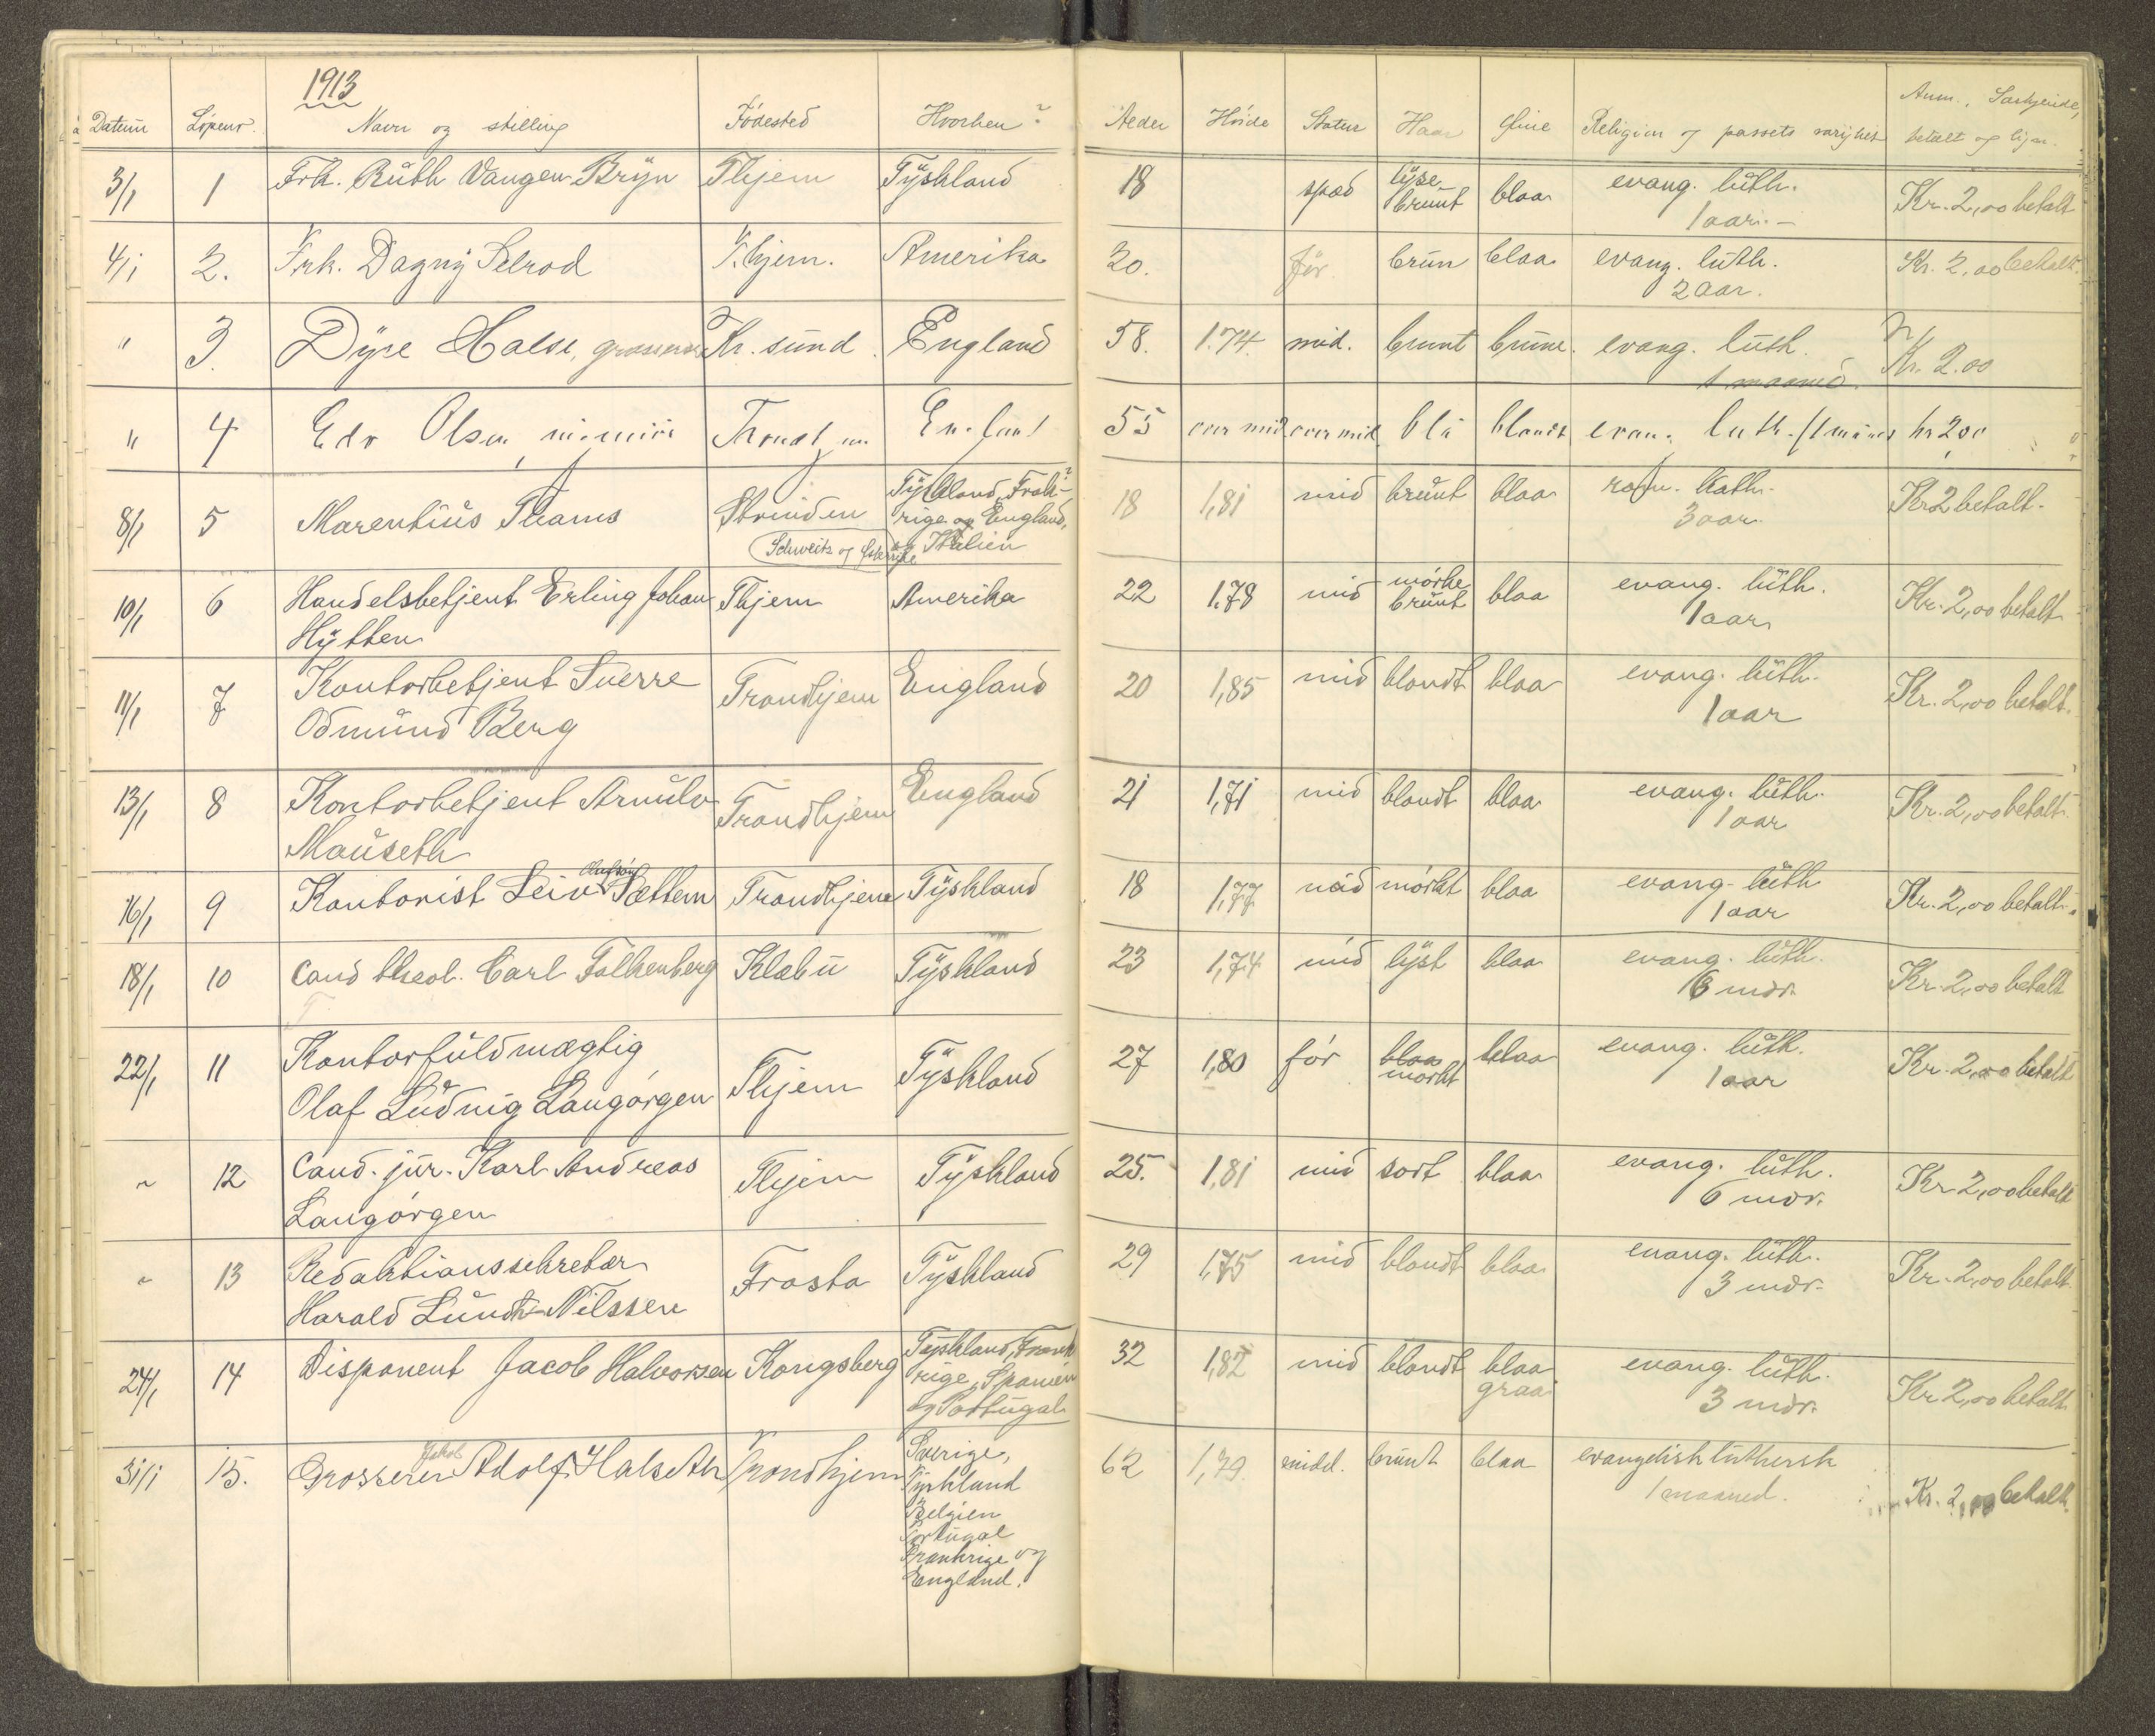 1913
Datum Löpenr. Navn og stilling Födested Hvorhen? Alder Höide Statur Haar Öine Religion og passets varighet Anm., Særkjende, betalt og lign.
3/1 1 Frk. Ruth Vangen Bryn Thjem Tyskland 18 spæd lyse brunt blaa evang. luth. 1 aar. Kr. 2,00 betalt
4/1 2. Frk. Dagny Selrod T.hjem. Amerika 20. før. brun blaa evang. luth. 2 aar. Kr. 2,00 betalt.
" 3. Dyre Halse, grosserer Kr. sund England 58. 1.74. mid. brunt brune. evang. luth. 1 maaned. Kr. 2.00
" 4 Edv Olsen Trondhjem England 55 over mid over mid blå blandt evan. luth. / 1 måned kr 2 00
8/1 5 Marentius Thams Strinden Tyskland, Frank-
rige og England,
Schweitz og Østerrike og Italien 18 1,81 mid brunt blaa rom. kath. 3 aar. Kr 2 betalt.
10/1 6 Handelsbetjent Erling Johan
Hytten Thjem Amerika 22 1.78 mid mörke brunt blaa evang. luth. 1 aar Kr. 2,00 betalt
11/1 7 Kontorbetjent Sverre
Odmund Berg Trondhjem England 20 1,85 mid blondt blaa evang. luth. 1 aar Kr. 2,00 betalt.
13/1 8 Kontorbetjent Arnulv
Mauseth Trondhjem England 21 1,71 mid blondt blaa evang. luth. 1 aar Kr. 2,00 betalt
16/1 9 Kontorist Leiv Olufsön Sættem Trondhjem Tyskland 18 1,77 mid mörkt blaa evang. luth 1 aar Kr. 2,00 betalt.
18/1 10 Cand theol. Carl Falkenberg Klæbu Tyskland 23 1,74 mid lyst blaa evang. luth. 6 mdr. Kr. 2,00 betalt
22/1 11 Kontorfuldmægtig
Olaf Ludvig Langörgen Thjem Tyskland 27 1,80 för blaa mörkt blaa evang. luth. 1 aar Kr. 2,00 betalt
" 12 Cand. jur. Karl Andreas
Langörgen Thjem Tyskland 25. 1,81 mid sort blaa evang. luth. 6 mdr. Kr 2,00 betalt
" 13 Redaktionssekretær
Harald Lundh-Nilssen Frosta Tyskland 29 1,75 mid blondt blaa evang. luth. 3 mdr. Kr. 2,00 betalt
24/1 14 Disponent Jacob Halvorsen Kongsberg Tyskland, Frank
rige, Spanien
og Portugal 32 1,82 mid blondt blaa graa evang. luth. 3 mdr. Kr 2,00 betalt
31/1 15. Grosserer Jakob Adolf Halseth Trondhjem Sverige,
Tyskland
Belgien
Portugal
Frankrige og
England. 62 1,79. middl. brunt blaa evangelisk luthersk 1 maaned. Kr. 2,00 betalt.